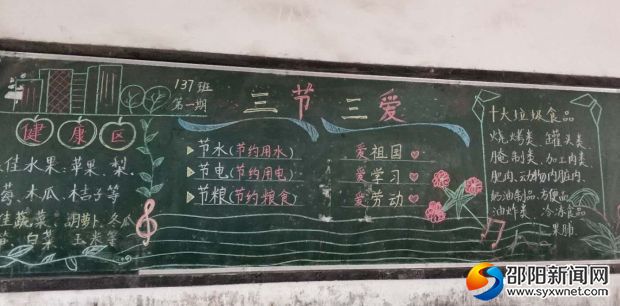 137班
第一期
健康区
佳水果:苹果、梨、
莓、木瓜、木桔子等
佳蔬菜:胡萝卜、冬瓜
白菜 玉米等
三节三爱
节水(节约用水)
节电(节约用电)
节粮(节约粮食)
爱祖国
爱学习
爱劳动
十大垃圾食品
烧烤类、罐头类、
腌制类、加工肉类
肥肉、动物内脏肉、
奶油制品、方便品
油炸类、冷冻食品
果脯
邵阳新闻网
www.syxwnet.com